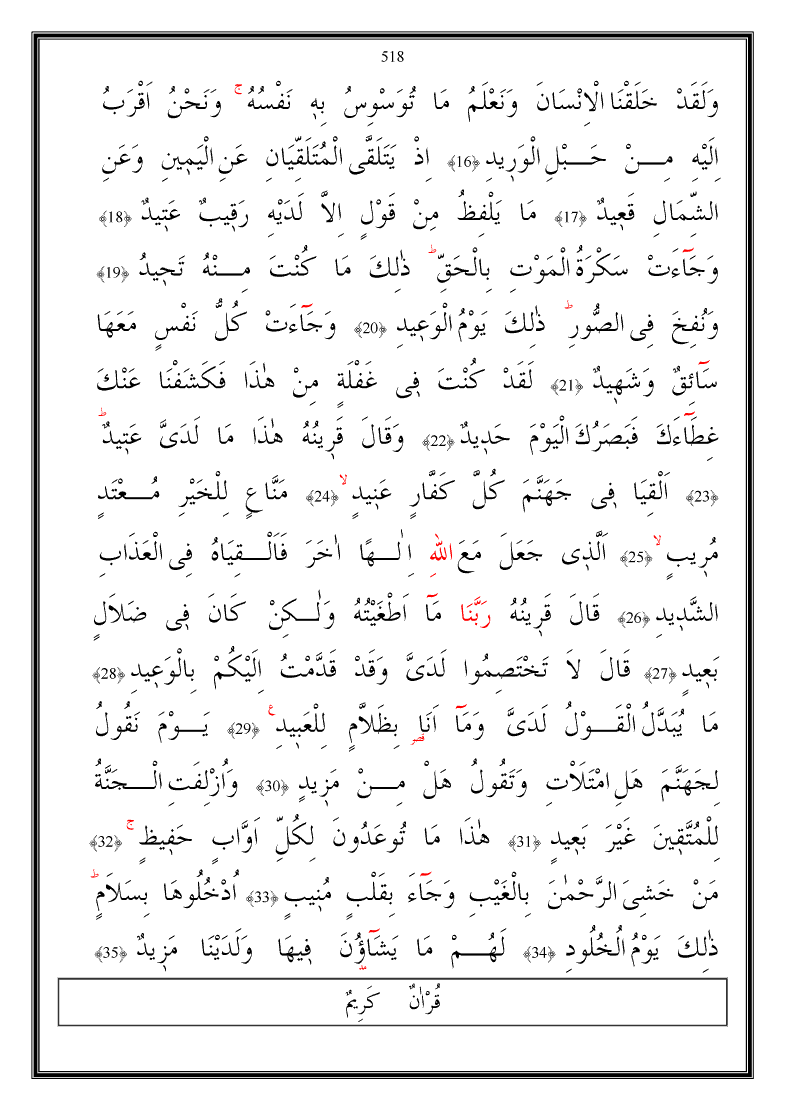 518
وَلَقَدْ خَلَقْنَا الْاِنْسَانَ وَنَعْلَمُ مَا تُوَسْوِسُ بِهٖ نَفْسُهُ ۚ وَنَحْنُ اَقْرَبُ
اِلَيْهِ مِـــنْ حَـــبْلِ الْوَرٖيدِ ﴿16﴾ اِذْ يَتَلَقَّى الْمُتَلَقِّيَانِ عَنِ الْيَمٖينِ وَعَنِ
الشِّمَالِ قَعٖيدٌ ﴿17﴾ مَا يَلْفِظُ مِنْ قَوْلٍ اِلاَّ لَدَيْهِ رَقٖيبٌ عَتٖيدٌ ﴿18﴾
وَجَٓاءَتْ سَكْرَةُ الْمَوْتِ بِالْحَقِّ ؕ ذٰلِكَ مَا كُنْتَ مِـــنْهُ تَحٖيدُ ﴿19﴾
وَنُفِخَ فِى الصُّورِ ؕ ذٰلِكَ يَوْمُ الْوَعٖيدِ ﴿20﴾ وَجَٓاءَتْ كُلُّ نَفْسٍ مَعَهَا
سَٓائِقٌ وَشَهٖيدٌ ﴿21﴾ لَقَدْ كُنْتَ فٖى غَفْلَةٍ مِنْ هٰذَا فَكَشَفْنَا عَنْكَ
غِطَٓاءَكَ فَبَصَرُكَ الْيَوْمَ حَدٖيدٌ ﴿22﴾ وَقَالَ قَرٖينُهُ هٰذَا مَا لَدَىَّ عَتٖيدٌ ؕ
﴿23﴾ اَلْقِيَا فٖى جَهَنَّمَ كُلَّ كَفَّارٍ عَنٖيدٍ ۙ ﴿24﴾ مَنَّاعٍ لِلْخَيْرِ مُـــعْتَدٍ
مُرٖيبٍ ۙ ﴿25﴾ اَلَّذٖى جَعَلَ مَعَ اللّٰهِ اِلٰـــهًا اٰخَرَ فَاَلْـــقِيَاهُ فِى الْعَذَابِ
الشَّدٖيدِ ﴿26﴾ قَالَ قَرٖينُهُ رَبَّنَا مَٓا اَطْغَيْتُهُ وَلٰـــكِنْ كَانَ فٖى ضَلاَلٍ
بَعٖيدٍ ﴿27﴾ قَالَ لاَ تَخْتَصِمُوا لَدَىَّ وَقَدْ قَدَّمْتُ اِلَيْكُمْ بِالْوَعٖيدِ ﴿28﴾
مَا يُبَدَّلُ الْقَـــوْلُ لَدَىَّ وَمَٓا اَنَا۬ بِظَلاَّمٍ لِلْعَبٖيدِ ۟ ﴿29﴾ يَـــوْمَ نَقُولُ
لِجَهَنَّمَ هَلِ امْتَلَاْتِ وَتَقُولُ هَلْ مِـــنْ مَزٖيدٍ ﴿30﴾ وَاُزْلِفَتِ الْـــجَنَّةُ
لِلْمُتَّقٖينَ غَيْرَ بَعٖيدٍ ﴿31﴾ هٰذَا مَا تُوعَدُونَ لِكُلِّ اَوَّابٍ حَفٖيظٍ ۚ ﴿32﴾
مَنْ خَشِىَ الرَّحْمٰنَ بِالْغَيْبِ وَجَٓاءَ بِقَلْبٍ مُنٖيبٍ ﴿33﴾ اُدْخُلُوهَا بِسَلاَمٍ ؕ
ذٰلِكَ يَوْمُ الْخُلُودِ ﴿34﴾ لَهُـــمْ مَا يَشَٓاؤُ۫نَ فٖيهَا وَلَدَيْنَا مَزٖيدٌ ﴿35﴾
قُرْاٰنٌ كَرٖيمٌ